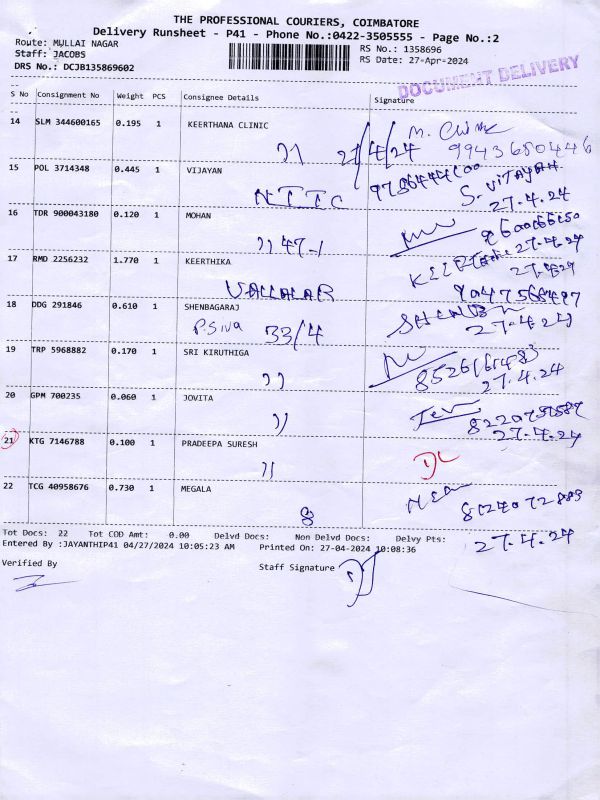 THE PROFESSIONAL COURIERS, COIMBATORE
Delivery Runsheet - P41 - Phone No.:0422-3505555 - Page No.:2
Route: MULLAI NAGAR
Staff: JACOBS
DRS No.: DCJB135869602
RS No.: 1358696
RS Date: 27-Apr-2024
DOCUMENT DELIVERY
S No Consignment No Weight PCS Consignee Details Signature
14 SLM 344600165 0.195 1 KEERTHANA CLINIC
27/4/24 9943680446
15 POL 3714348 0.445 1 VIJAYAN
S. VIJAYAN
27.4.24
16 TDR 900043180 0.120 1 MOHAN
27.4.24
17 RMD 2256232 1.770 1 KEERTHIKA
27.4.24
VALLALAR
18 DDG 291846 0.610 1 SHENBAGARAJ
P.Siva 33/4
27.4.24
19 TRP 5968882 0.170 1 SRI KIRUTHIGA
27.4.24
20 GPM 700235 0.060 1 JOVITA
27.4.24
21 KTG 7146788 0.100 1 PRADEEPA SURESH
22 TCG 40958676 0.730 1 MEGALA
8
Tot Docs: 22 Tot COD Amt: 0.00 Delvd Docs: Non Delvd Docs: Delvy Pts:
27.4.24
Entered By :JAYANTHIP41 04/27/2024 10:05:23 AM Printed On: 27-04-2024 10:08:36
Verified By
Staff Signature